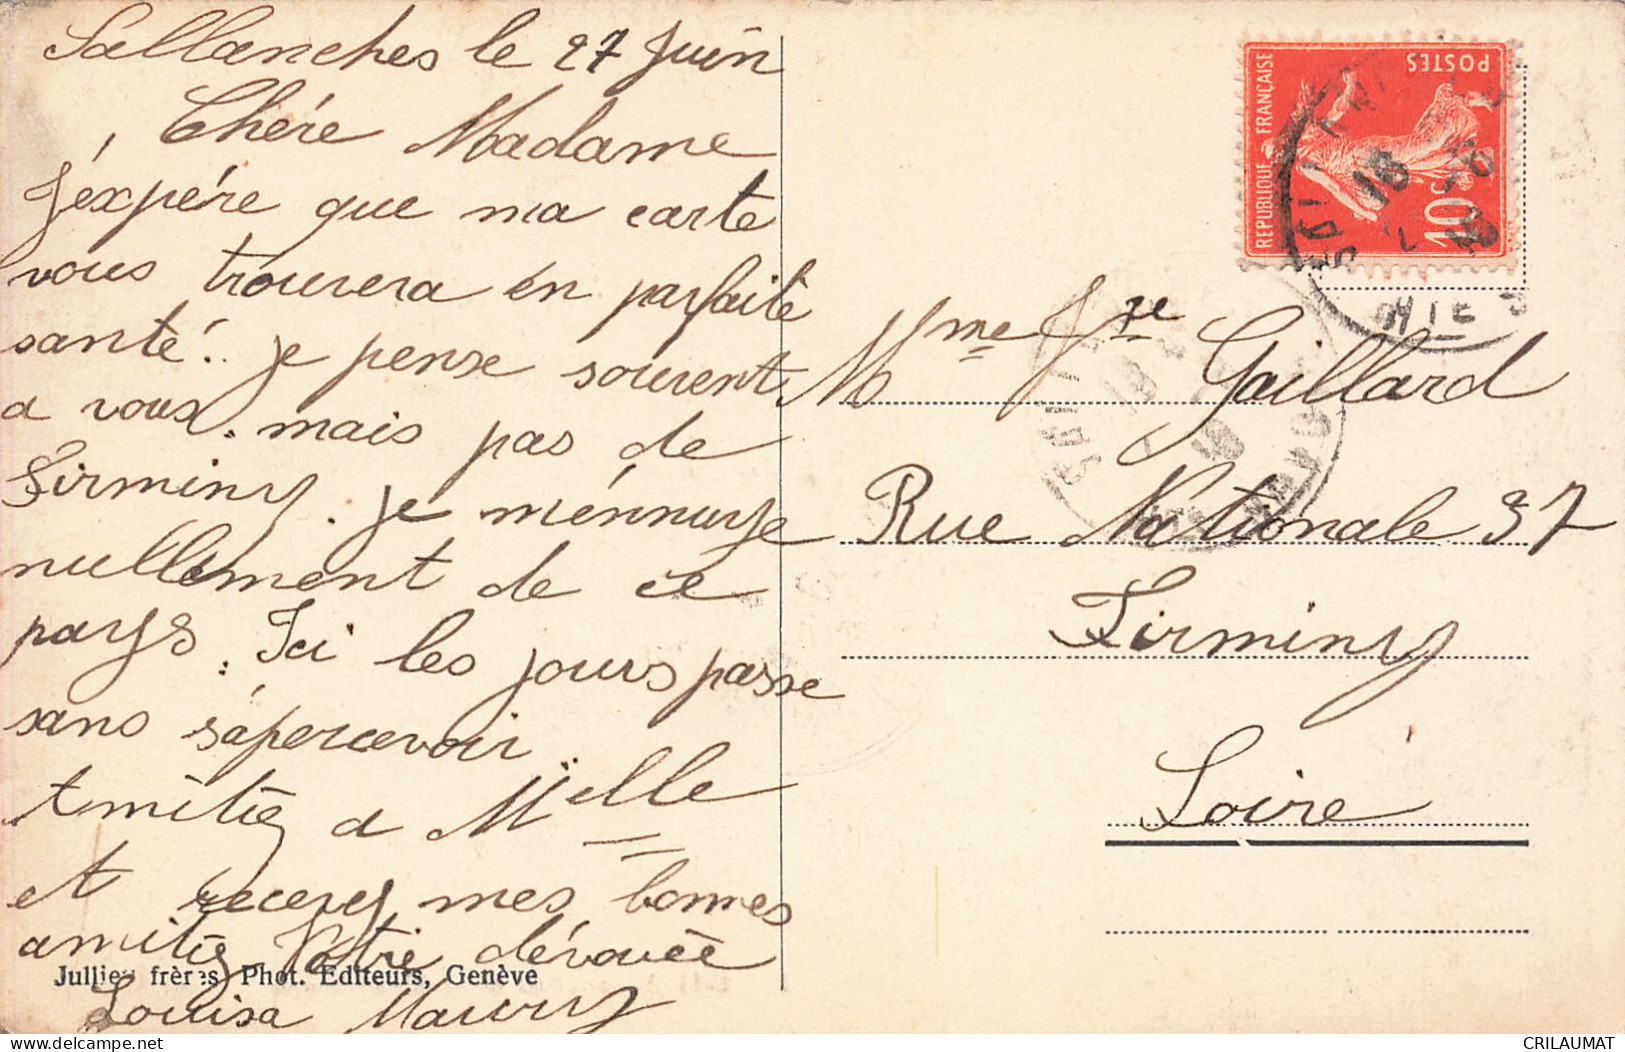 Sallanches le 27 Juin
Chére Madame
J'expére que ma carte
vous trouvera én parfaite
santé. je pense souvent
a vous. mais pas de
Firminy. je m'énnuye
nullement de ce
pays. Ici les jours passe
sans s'apercevoir
Amitiés a Melle
et recevez mes bonnes
amitiés Votre dévouée
Louisa Maurry
Jullien frères, Phot. Editeurs, Genève
POSTES
REPUBLIQUE FRANÇAISE
10c
HTE S
Mme Jve Gaillard
Rue Nationale 37
Firminy
Loire
delcampe.net
CRILAUMAT